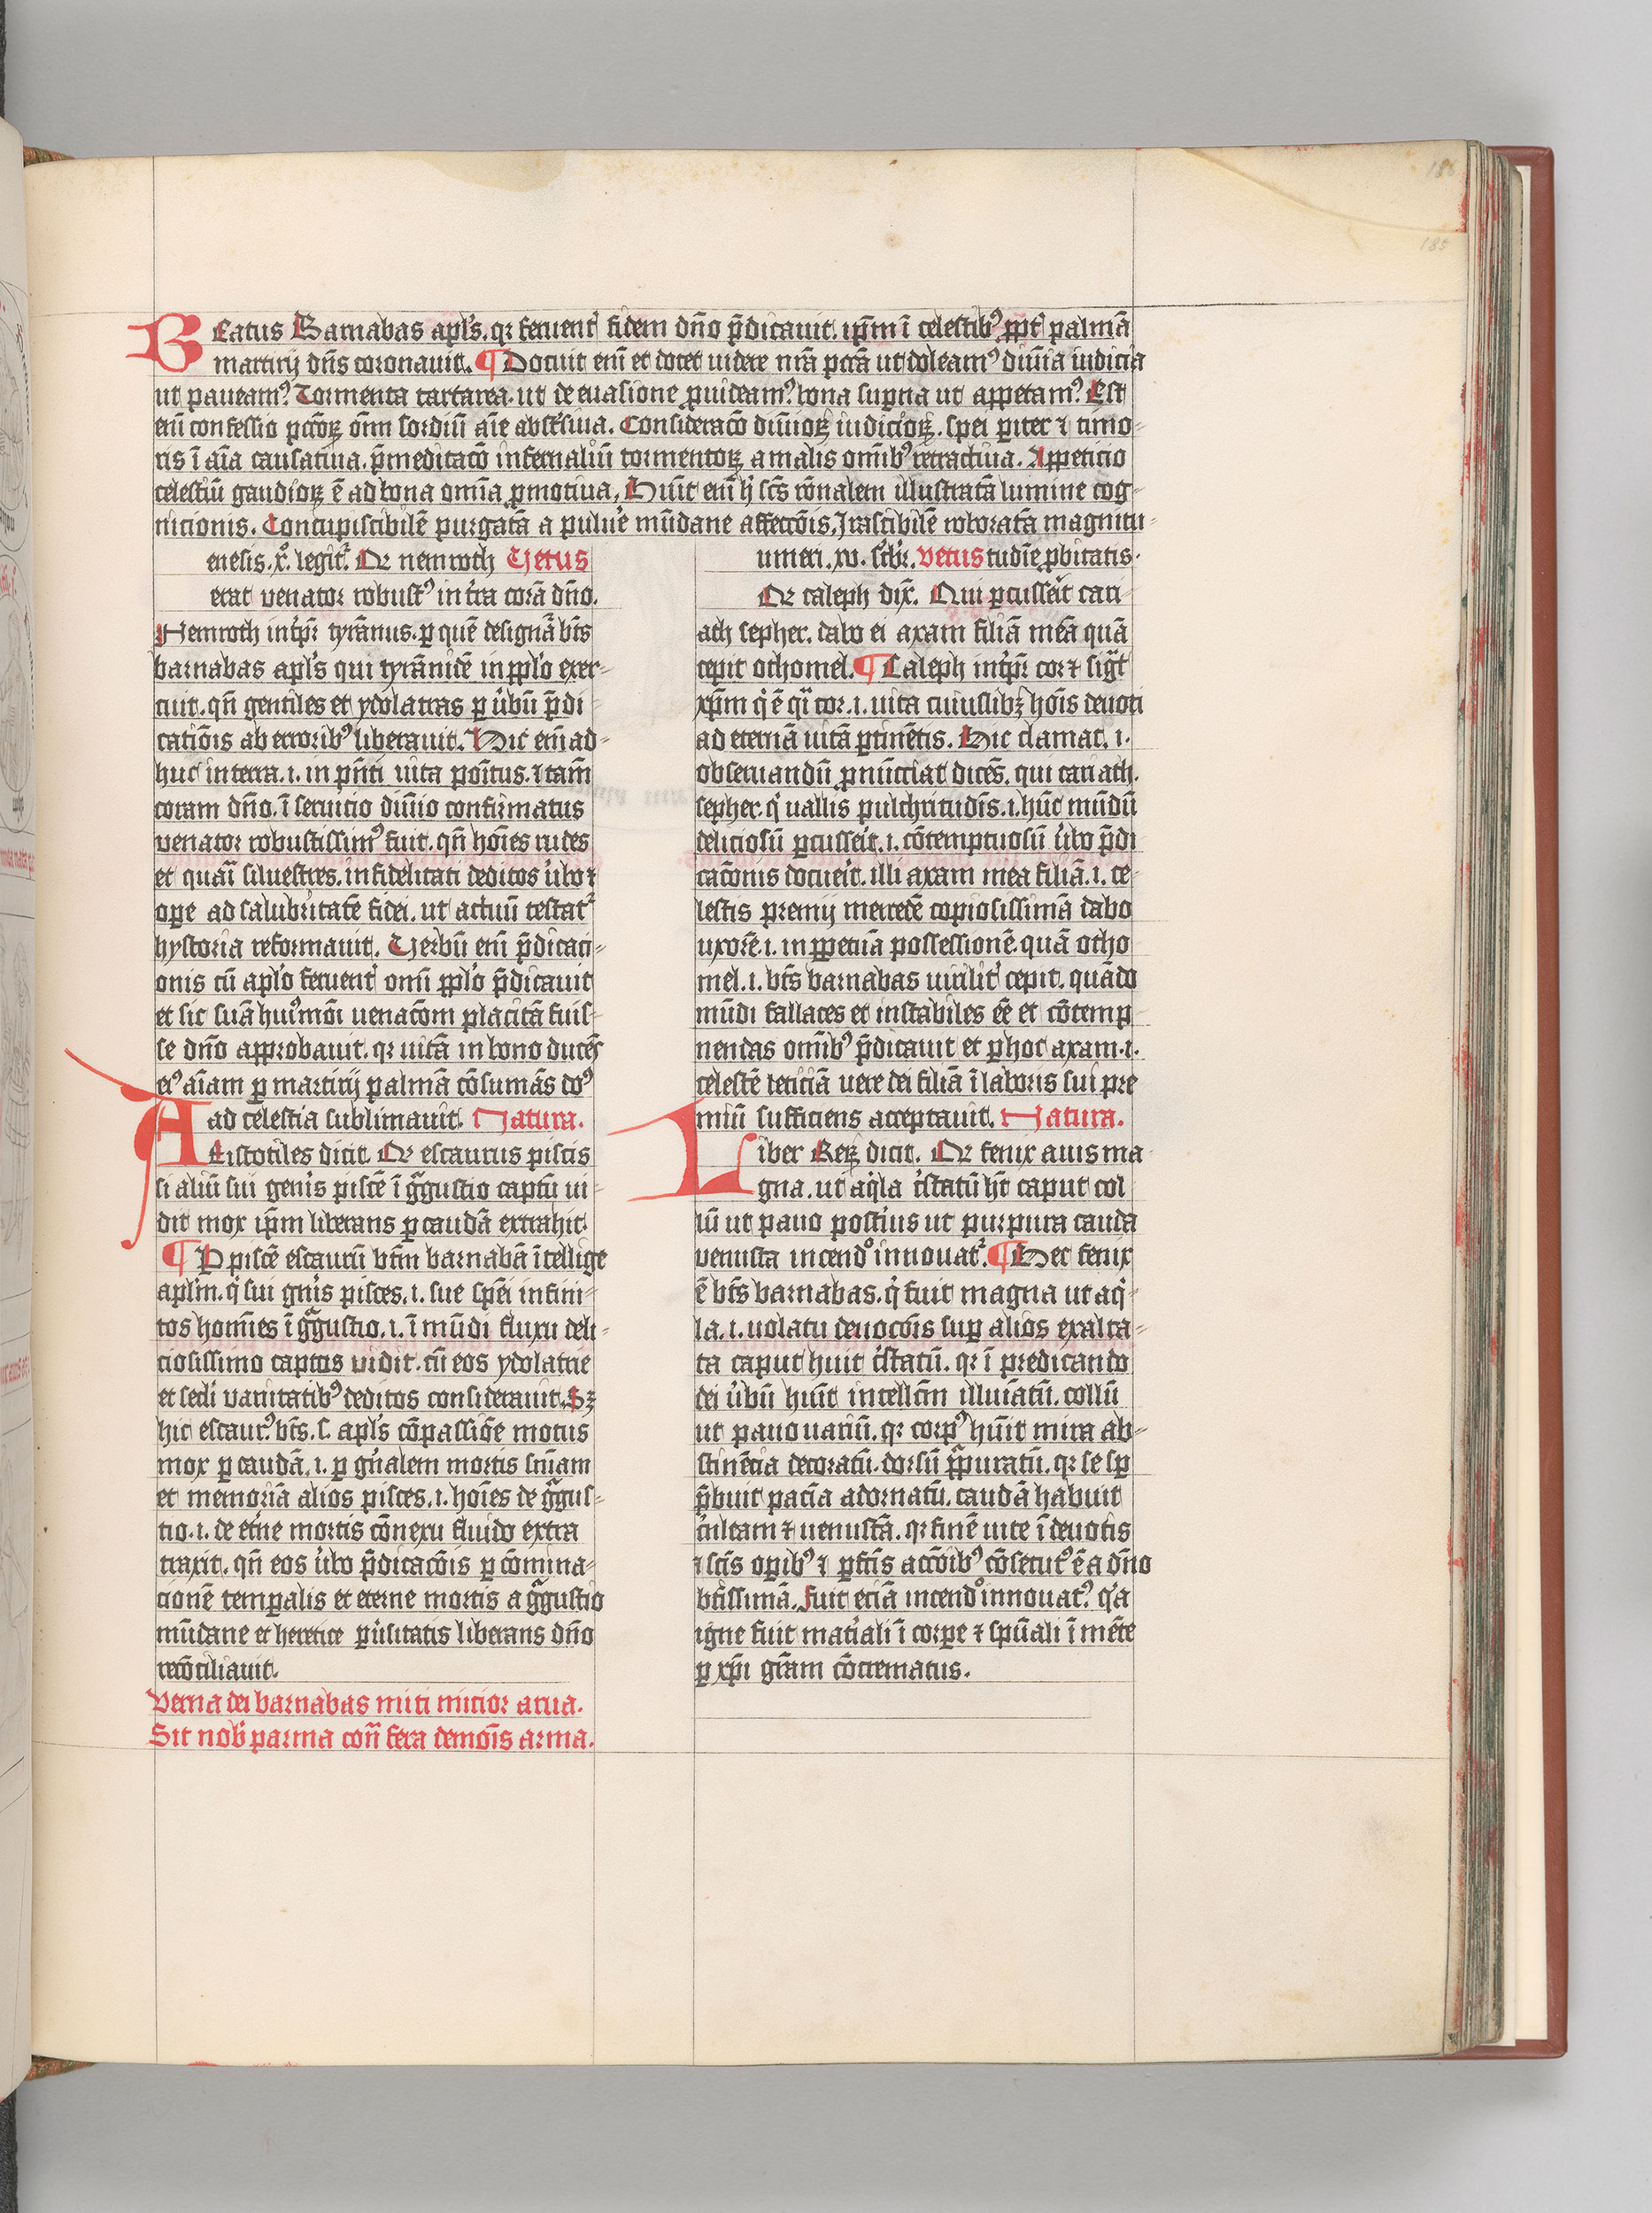 186
185
Beatus Barnabas apl's. qr feruent' fidem dño p̄dicauit. ip̄m ī celestib⁹ ꝓpt' palmā
martirij dñs coronauit. ¶ Docuit eni᷑ et docet uidere nr̄a pctā ut doleam⁹ diuīa iudicia
ut paueam⁹. Tormenta tartarea. ut de euasione ꝓuideam⁹. bona supna ut appetam⁹. Est
eni᷑ confessio pctōꝝ om̄ sordiū aīe absťsiua. Consideracō diuīoꝝ iudicioꝝ. spei pit̉er ⁊ timo-
ris ī aīa causatiua. p̄meditacō infernaliū tormentoꝝ a malis omīb⁹ retractiua. Appeticio
celestiū gaudioꝝ ē ad bona omīa ꝓmotiua. Huīt eni᷑ h' scs rōnalem illustratā lumine cog-
nicionis. Concupiscibilē purgatā a puluē mūdane affectōis. Irascibilē roboratā magnitu-
enesis. x°. legit᷑. Qr nemroth Uetus
erat venator robust⁹ in t'ra corā dño.
Nemroth int'p̄r tyrānus. ꝑ quē designā᷑ bt̄s
barnabas apl's qui tyrānidē in ppl'o exer-
cuit. qñ gentiles et ydolatras ꝑ ůbū p̄di-
catiōis ab errorib⁹ liberauit. Hic eni᷑ ad-
huc in terra. i. in pñti uita poītus. ⁊ tam̄
coram dño. ī seruicio diuīo confirmatus
venator robustissim⁹ fuit. qñ hoīes rudes
et quāī siluestres. infidelitati deditos ůbo ⁊
ope ad salubritatē fidei. ut actuū testat᷑
hystoria reformauit. Uerbū eni᷑ p̄dicaci-
onis cū apl'o feruent' omī ppl'o p̄dicauit
et sic suā hui⁹mōi uenacōm placitā fuis-
se dño approbauit. qr uitā in bono ducēs
ei⁹ aīam ꝑ martirij palmā cōsumās do⁹
ad celestia sublimauit. Natura.
Aristotiles dicit. Qr escaurus piscis
si aliū sui genis piscē ī g̃gustio captū ui-
dit mox ip̄m liberans ꝑ caudā extrahit.
¶ P piscē escaurū btm barnabā ītellige
apl'm. q' sui gn̄is pisces. i. sue spēi infini-
tos homīes ī g̃gustio. i. ī mūdi fluxu deli-
ciosissimo captos uidit. cū eos ydolatrie
et sedi vanitatib⁹ deditos considerauit. Sꝫ
hic escaur⁹. bt̄s. s. apl's cōpassiōe motus
mox ꝑ caudā. i. ꝑ gn̄alem mortis snīam
et memoriā alios pisces. i. hoīes de g̃gus-
tio. i. de et'ne mortis cōnexu fluido extra
traxit. qñ eos ůbo p̄dicacōis ꝑ cōmina-
cionē temꝑalis et eterne mortis a g̃gustio
mūdane et heretice ꝑůsitatis liberans dño
recōciliauit.
Verna dei barnabas miti mitior atua.
Sit nob' parma con᷑ fera demoīs arma.
umeri. xv. sc'br. Vetus tudīe ꝓbitatis.
Qr caleph dix̄. Qui ꝑcussēit cari
ath sepher. dabo ei axam filiā meā quā
cepit othomel. ¶ Caleph int'p̄r cor ⁊ sig̃t
xp̄m q' ē qi cor. i. uita cuiuslibꝫ hoīs deuoti
ad eternā uitā ꝑtinētis. Hic clamat. i.
obseruandū ꝓnūcciat dicēs. qui cariath.
sepher. q' uallis pulchritudīs. i. hūc mūdū
deliciosū ꝑcusseīt. i. cōtemptuosū ůbo p̄di
cacōnis docueīt. illi axam mea filiā. i. ce-
lestis premij mercedē copiosissimā dabo
uxorē. i. in ꝑpetuā possessionē. quā otho
mel. i. bt̄s barnabas uirilit' cepit. quādo
mūdi fallaces et instabiles eē et cōtemp
nendas omīb⁹ p̄dicauit et ꝑ hoc axam. i.
celestē leticiā uere dei filiā ī laboris sui pre
miū sufficiens acceptauit. Natura.
Liber Reꝝ dicit. Qr fenix auis ma-
gna. ut aq'la c̓statū hꝫ caput col
lū ut pauo post'ius ut purpura cauda
venusta incend° innouat᷑. ¶ Hec fenix
ē bt̄s barnabas. q' fuit magna ut aq'-
la. i. uolatu deuocōis suꝑ alios exalta-
ta caput huit c̓statū. qr ī predicando
dei ůbū huīt intellcm illuīatū. collū
ut pauo uariū. qr corp⁹ huīt mira ab-
stinēcia decoratū. dorsū pp̄uratū. qr se sp
p̄buit paciā adornatū. caudā habuit
c'uleam ⁊ uenustā. qr finē uite ī deuotis
⁊ scīs opib⁹ ⁊ pfcīs accōib⁹ cōsecut⁹ ē a dño
btīssimā. Fuit eciā incend° innouat⁹. q'a
igne fuit mat'iali ī corpe ⁊ sp̄uali ī mēte
ꝑ xp̄i grām cōcrematus.